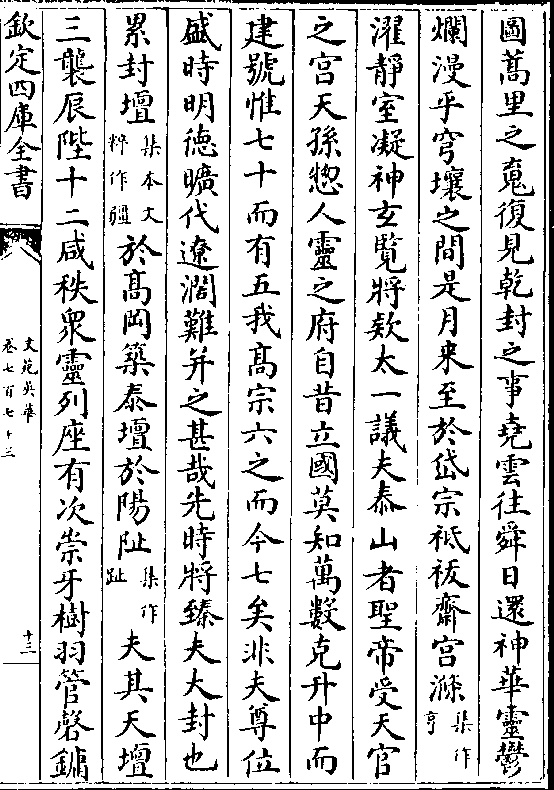 圖蒿里之䰟復見乾封之事堯雲往舜日還神華靈鬱
爛漫乎穹壤之間是月来至於岱宗祗祓齋宮滌集作亨
濯靜室凝神玄覽將欵太一議夫泰山者聖帝受天官
之宫天孫惣人靈之府自昔立國莫知萬數克升中而
建號惟七十而有五我髙宗六之而今七矣非夫尊位
盛時明德曠代遼濶難并之甚哉先時將臻夫大封也
累封壇集本文粹作疆於髙岡築泰壇於陽阯集作趾夫其天壇
三襲辰陛十二咸秩衆靈列座有次崇牙樹羽管磬鏞
欽定四庫全書
文苑英華
卷七百七十三
十三